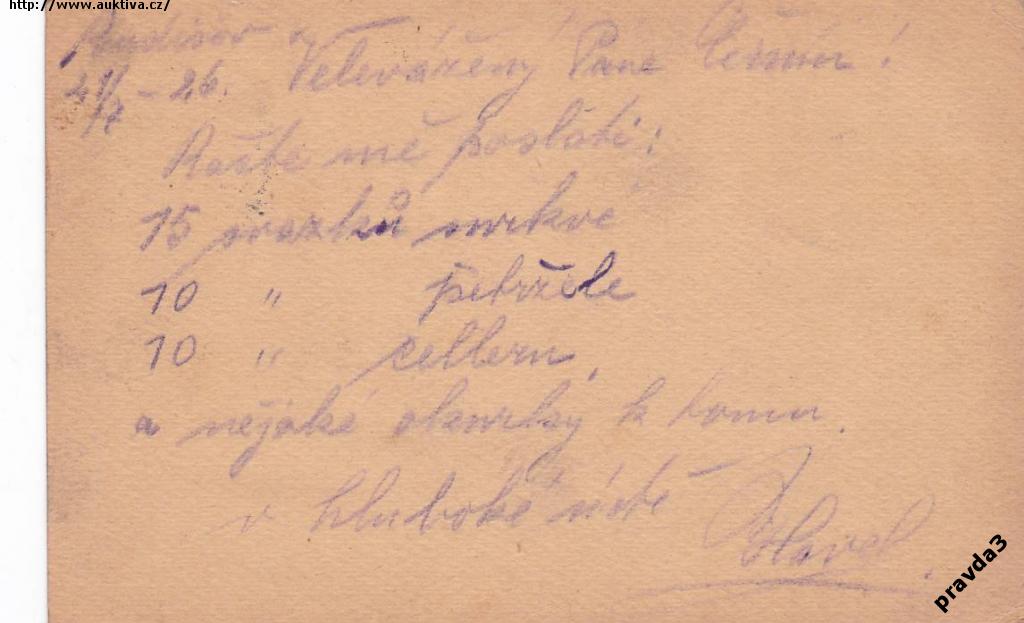 http://www.auktiva.cz/
21/7 - 26. Velevážený Pane
Račte mě poslati:
15 svazků mrkve
10 " petržele
10 " celleru,
a nějaké okurky k tomu.
v hluboké úctě
Havel.
pravda3